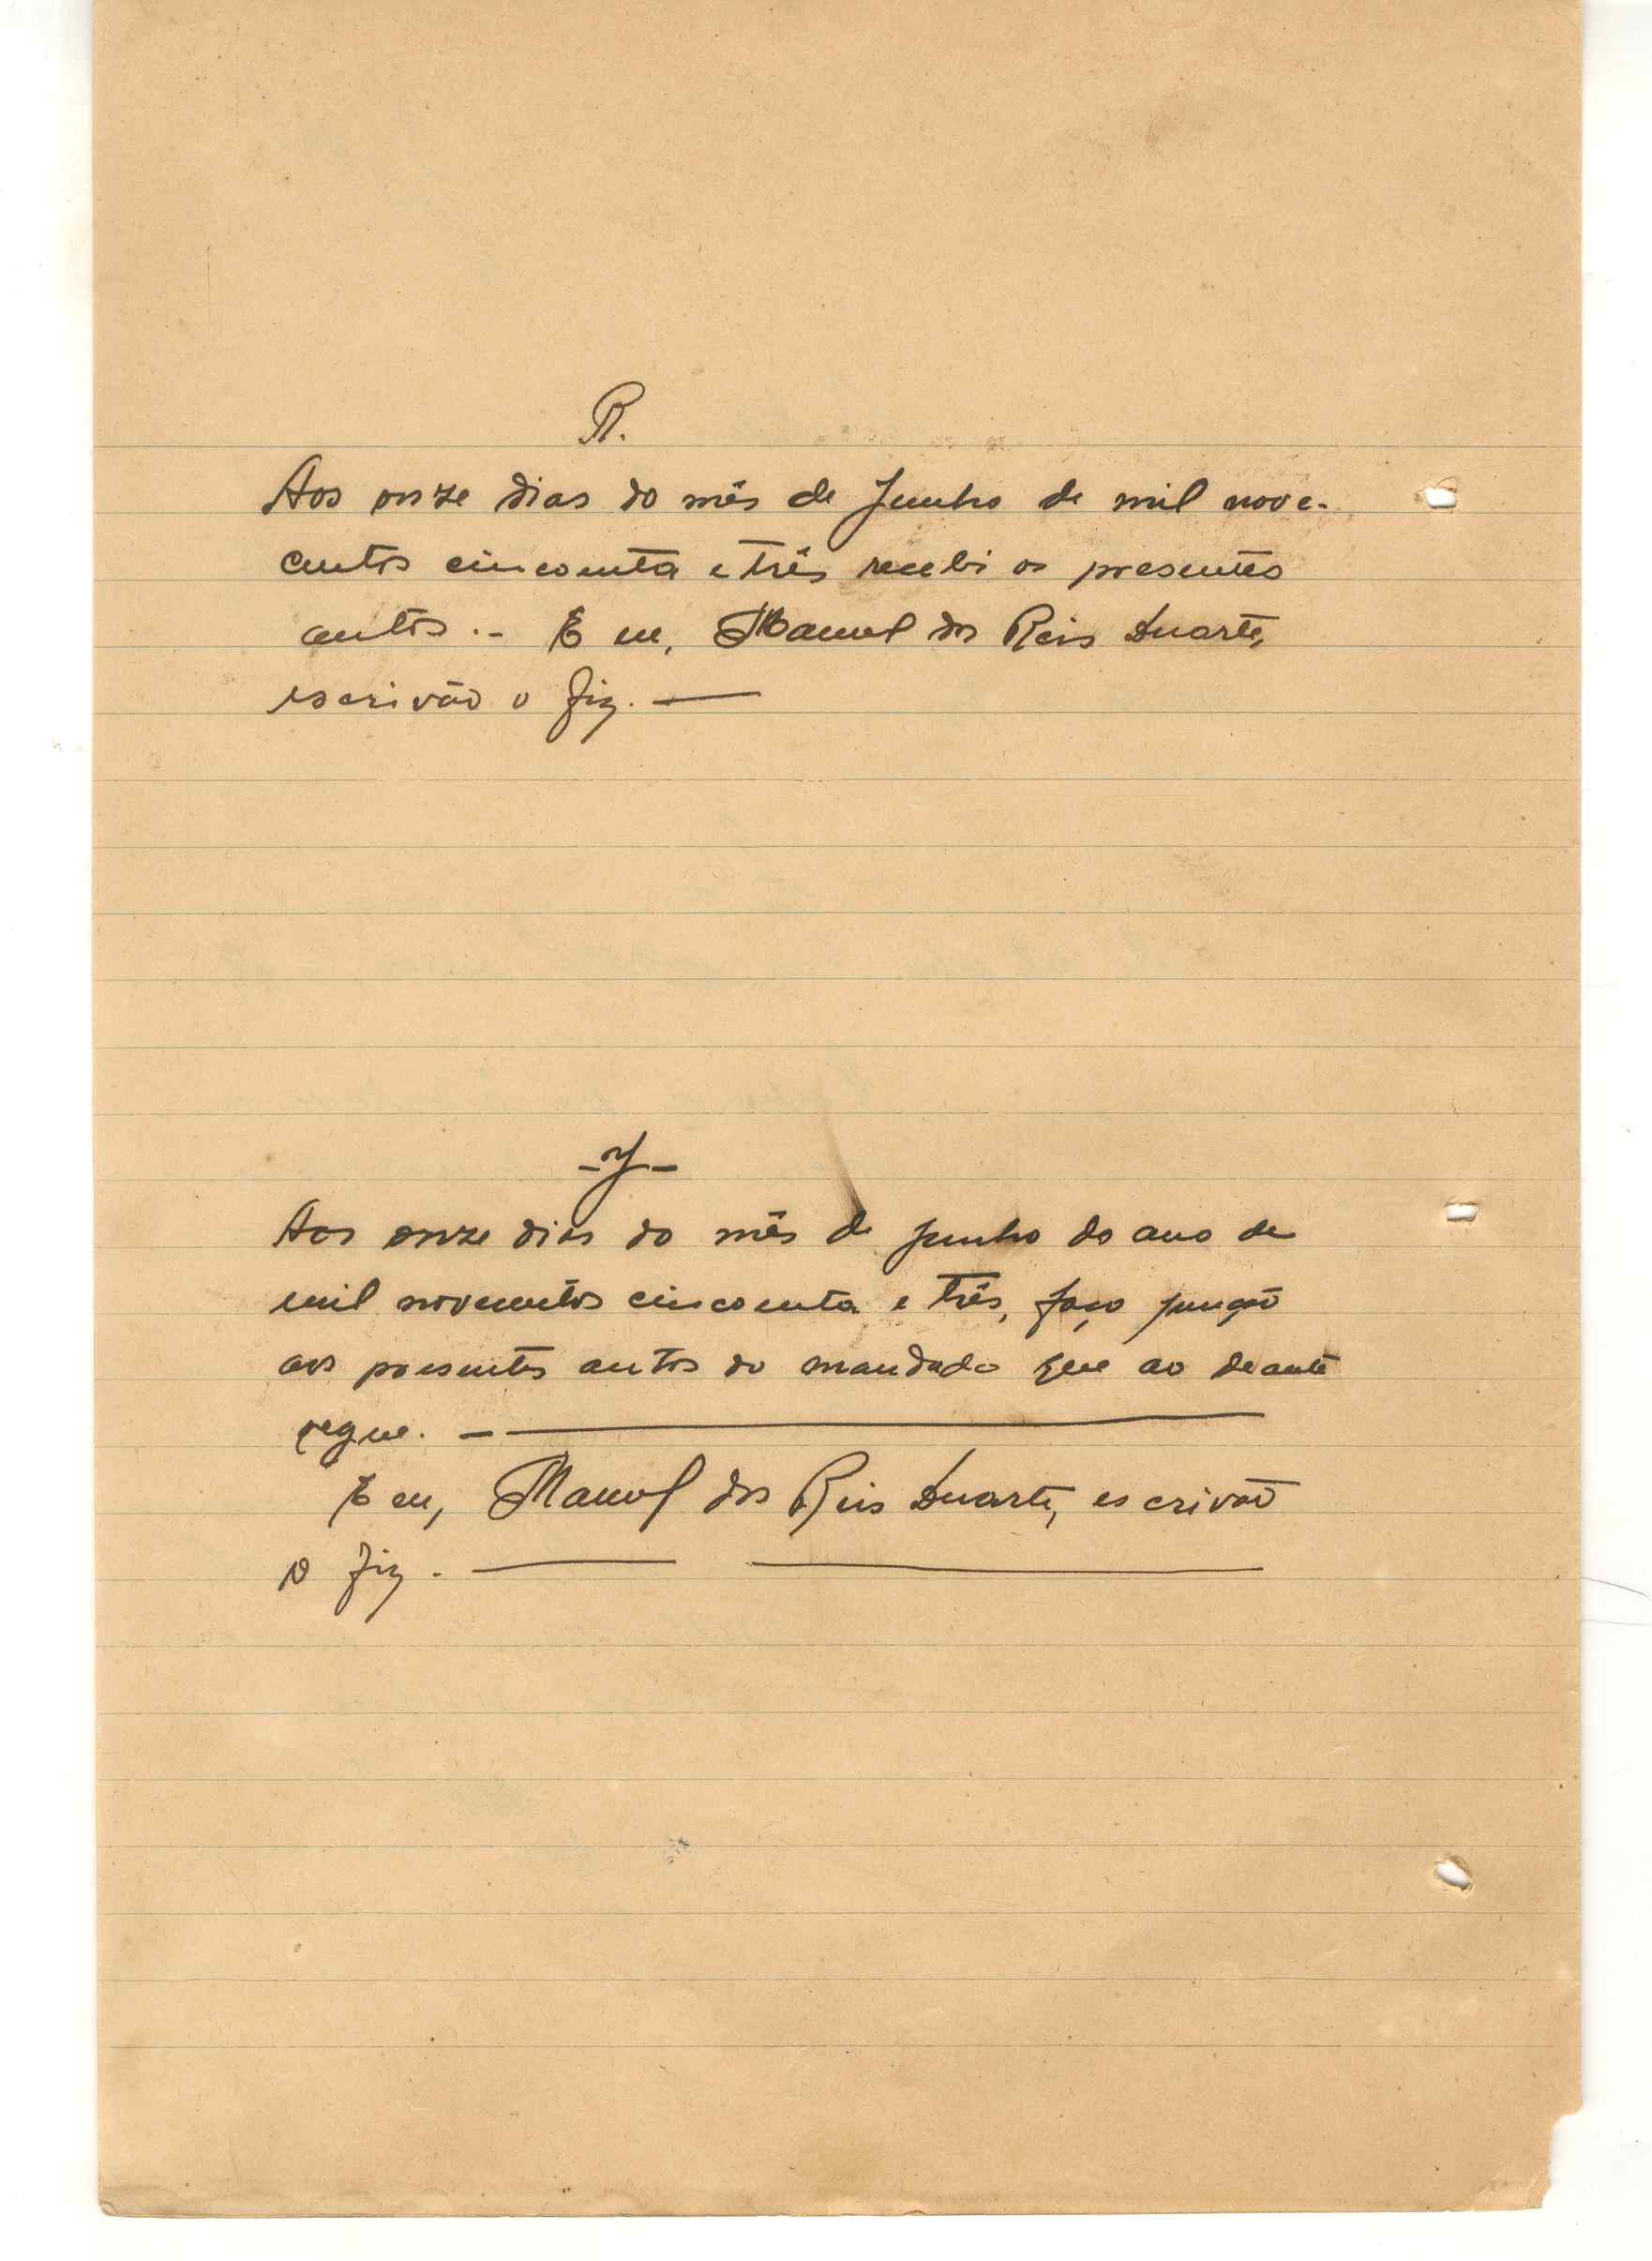 R.
Aos onze dias do mês de Junho de mil nove-
centos cincoenta e três recebi os presentes
autos .- E eu, Manoel dos Reis Duarte,
escrivão o fiz. —
- J -
Aos onze dias do mês de junho do ano de
mil novecentos cincoenta e três, faço junção
aos presentes autos do mandado que ao deante
segue. —
E eu, Manoel dos Reis Duarte, escrivão
o fiz. —